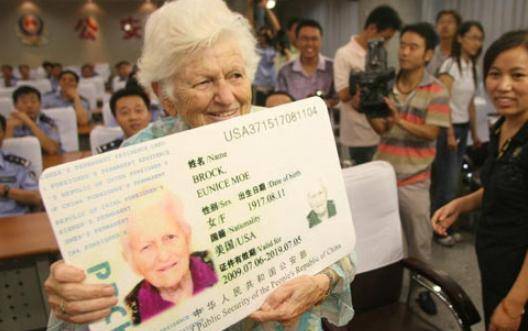 USA371517081104
姓名/Name
BROCK,
EUNICE MOE
性别/Sex 出生日期/Date of birth
女/F 1917.08.11
国籍/Nationality
美国/USA
证件有效期/Valid for
2009.07.06-2019.07.05
中华人民共和国公安部
Public Security of the People's Republic of China